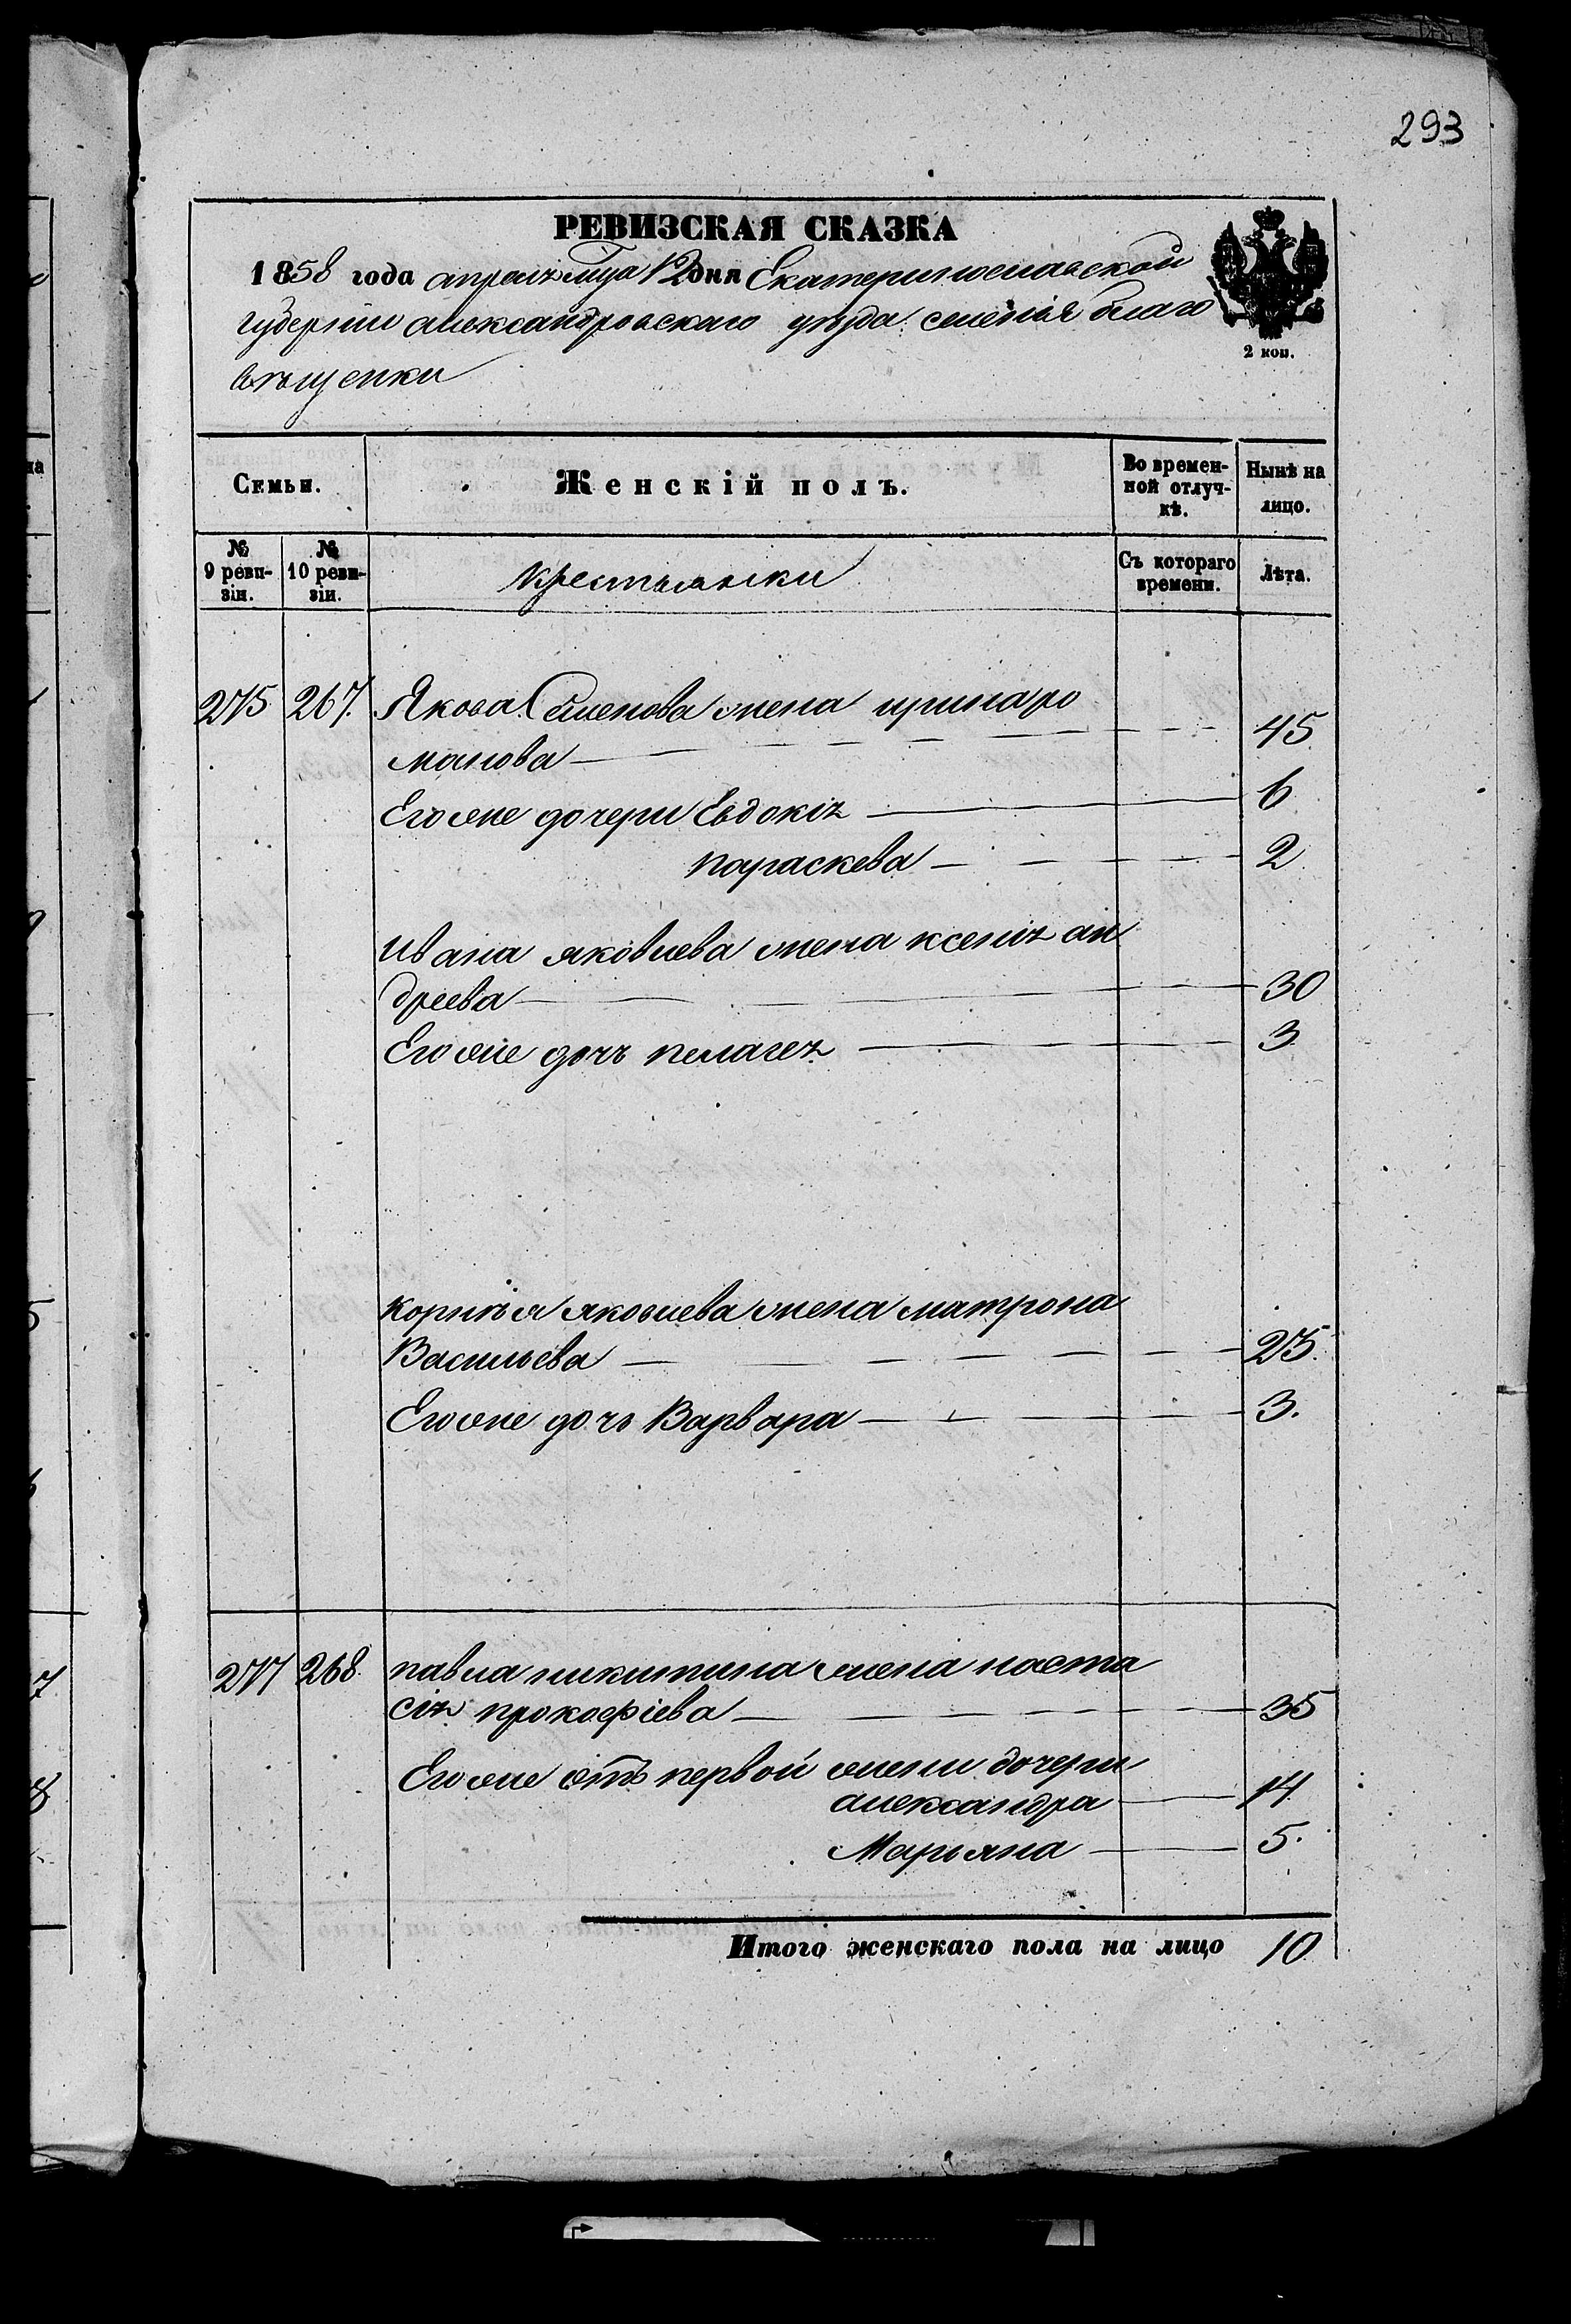 293
РЕВИЗСКАЯ СКАЗКА
1858 года апреля мца 12 дня Екатеринославской
губернии александровскаго уезда селения благо
вещенки
2 коп.
Семьи.
Женскій полъ.
Во времен-
ной отлуч-
кѣ.
Нынѣ на
лицо.
№
9 реви-
зіи.
№
10 реви-
зіи.
крестьянки
Съ котораго
времени.
Лѣта.
275 267. Якова Семенова жена ирина ро
манова 45
Его же дочери Евдокія 6
параскева 2
Ивана яковлева жена ксенія ан
дреева 30
Его же дочь пелагея 3
корнѣя яковлева жена матрона
Васильева 25.
Его же дочь Варвара 3.
277 268. павла никитина жена наста
сія прокофіева 35
Его же отъ первой жены дочери
александра 14
Марьяна 5.
Итого женскаго пола на лицо 10